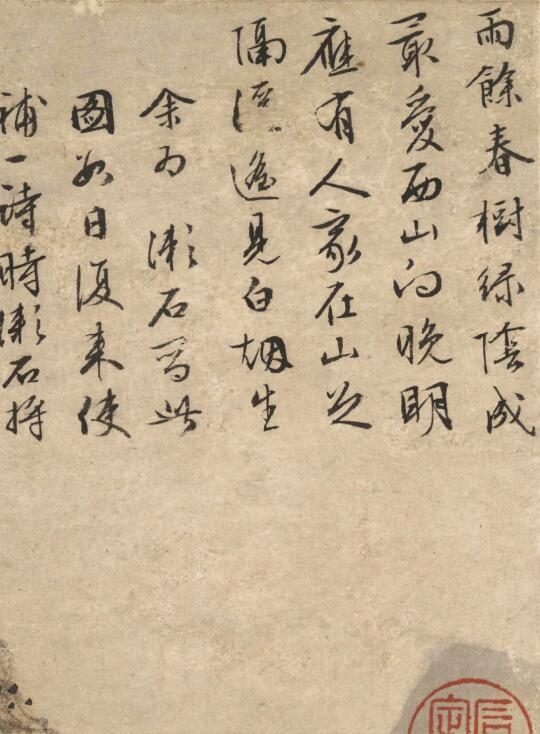 雨餘春樹綠陰成
最愛西山向晚明
應有人家在山足
隔溪遙見白烟生
余為瀨石寫此
圖數日復来使
補一詩時瀨石将